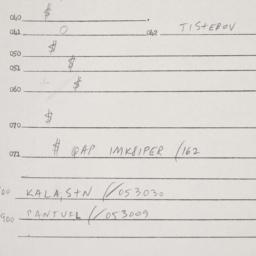 040 $
041 0 042 TISTEROV
050 $
051 $
060 $
070 $
071 # QAP IMK8IPER /162
00 KALA, S+N //053030
900 SANTUEL //053009